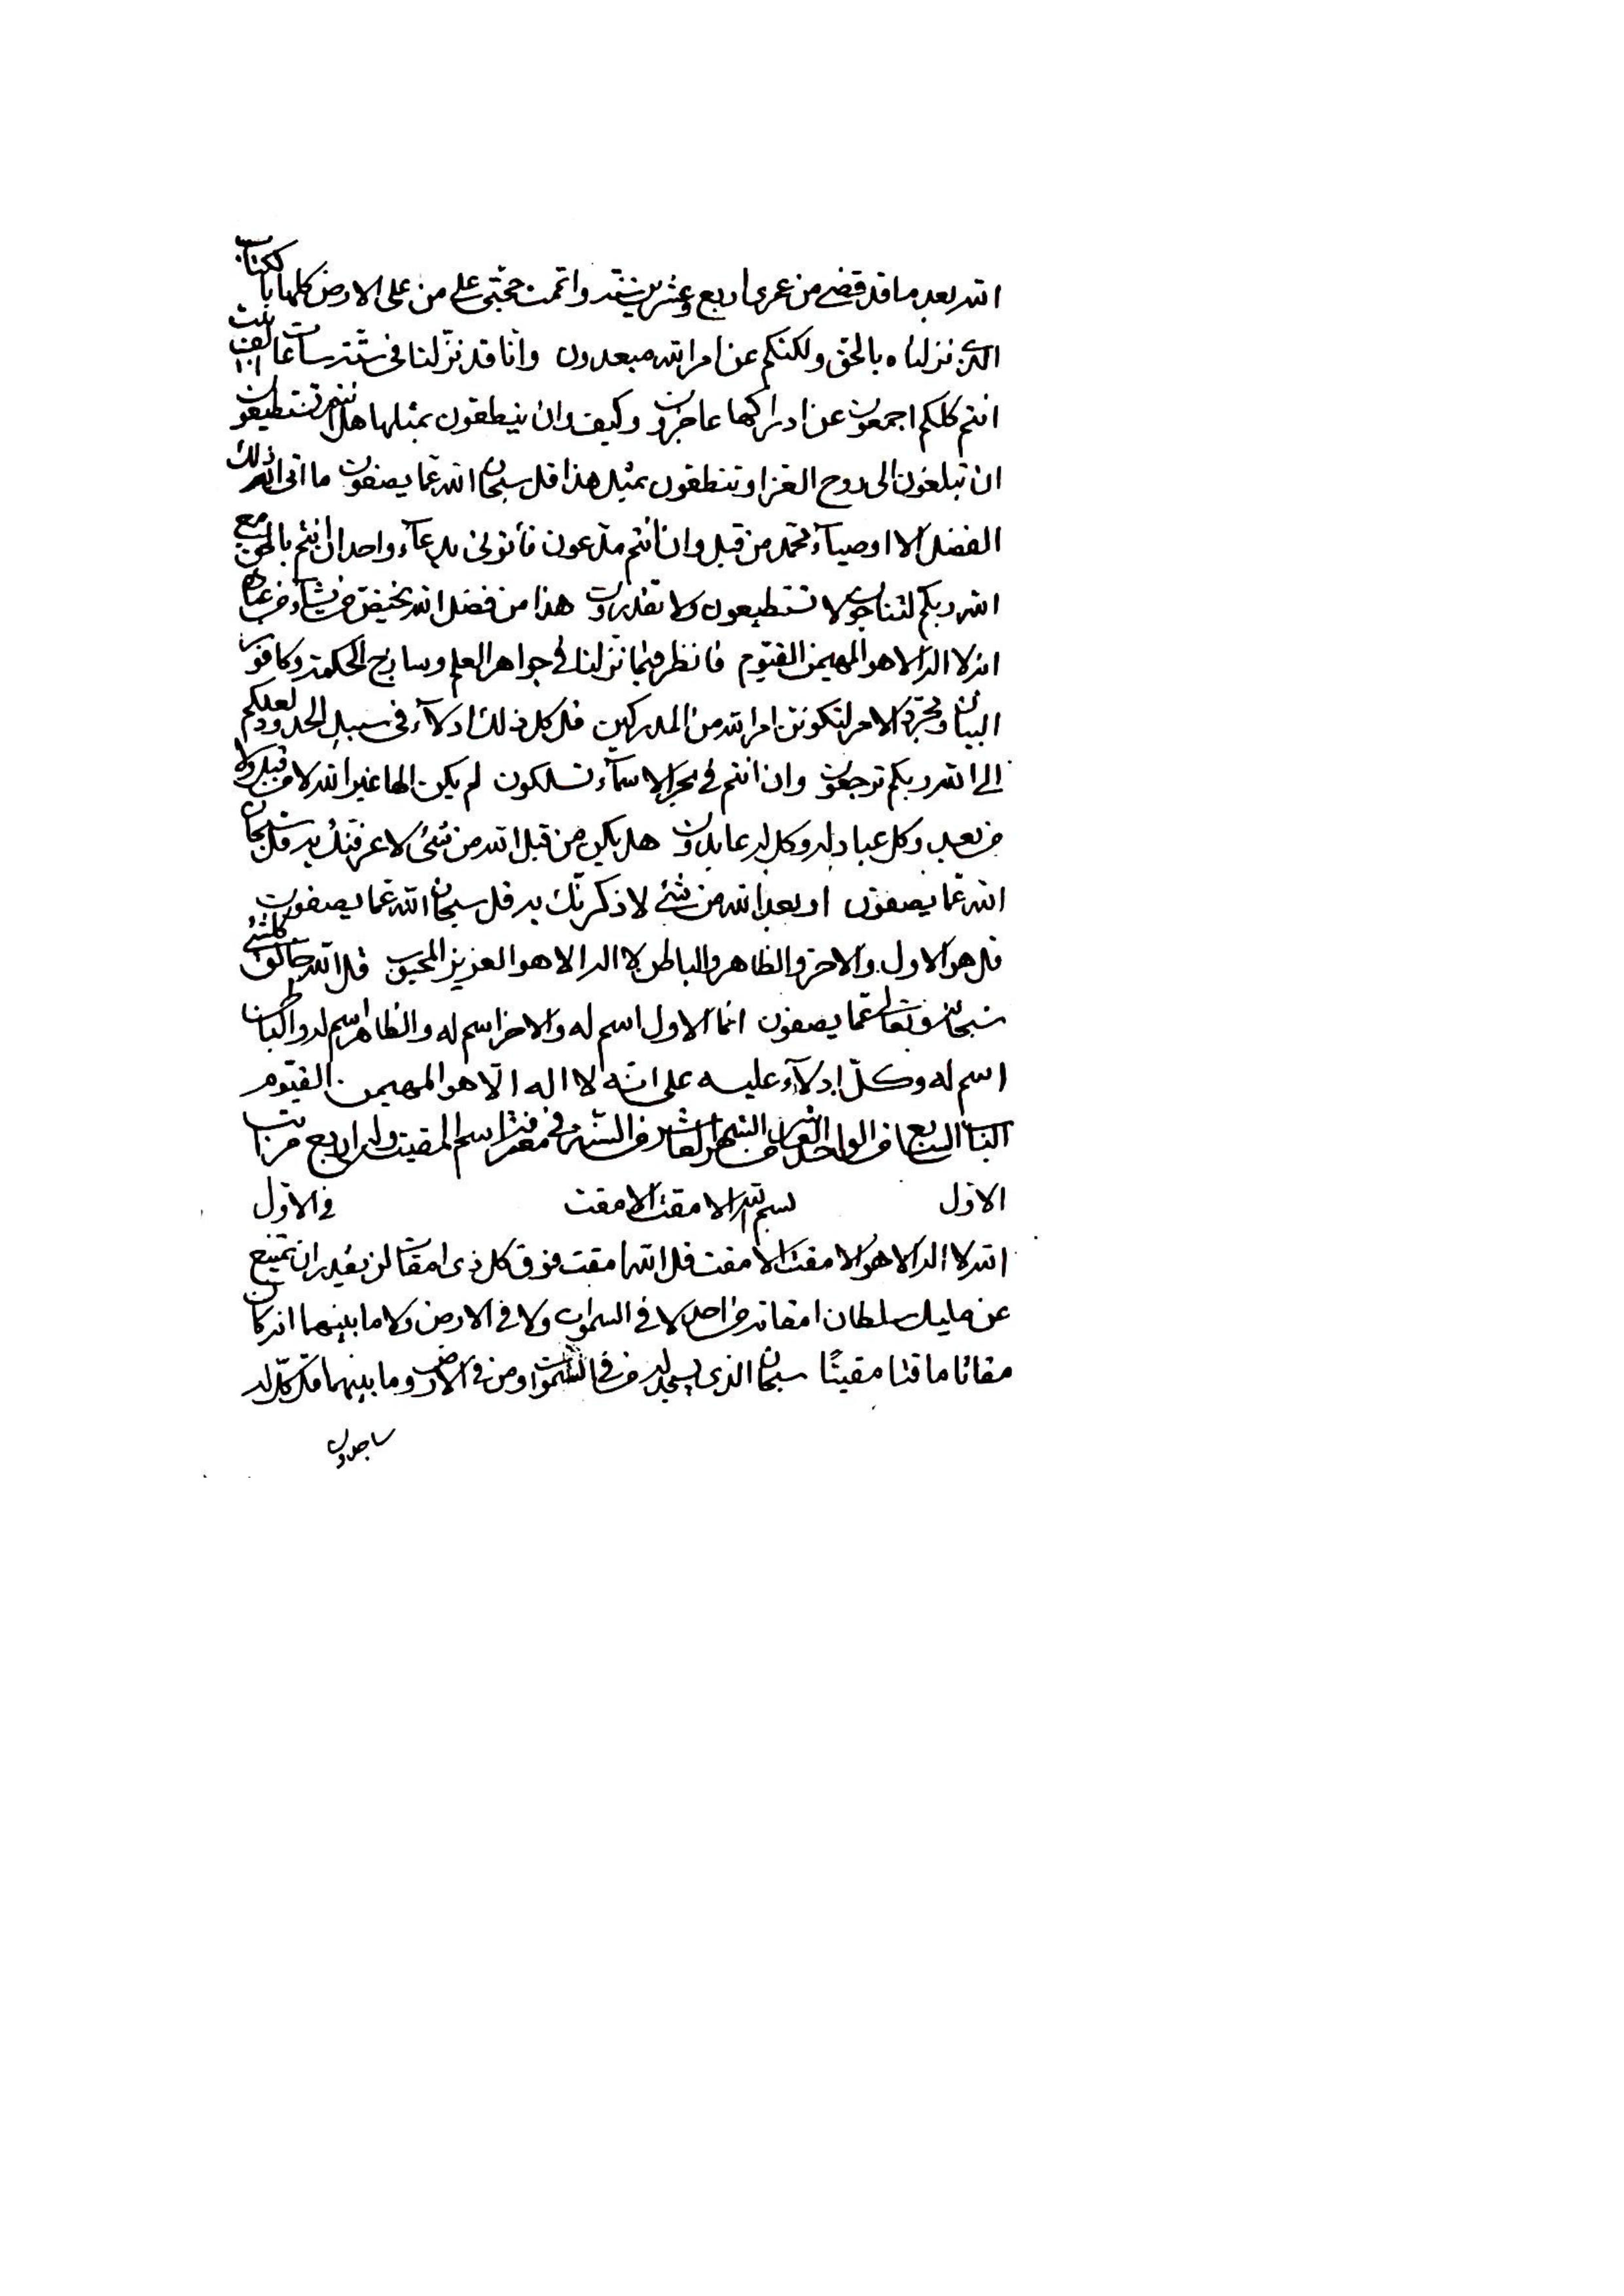 الله بعد ما قد قضى من عمرى اربع وعشرين سنة واتممت حجتى على من على الارض كلها بالكتاب
الذى نزلناه بالحق ولكنكم عن امر الله مبعدون وانا قد نزلنا فى ستة ساعات الف بيت
انتم كلكم اجمعون عن ادراكها عاجزون وكيف وان ينطقون بمثلها هل انتم تستطيعون
ان تبلغون الى روح العز او تنطقون بمثل هذا قل سبحان الله عما يصفون ما اتى الله ذلك
الفضل الا اوصياء محمد من قبل وان انتم مدعون فأتونى بدعاء واحد ان انتم بالحق مع
الله ربكم لتناجون لا تستطيعون ولا تقدرون هذا من فضل الله يختص من يشاء من عباده
انه لا اله الا هو المهيمن القيوم فانظر فيما نزلنا فى جواهر العلم وساذج الحكمة وكافور
البيان ومجرد الامر لتكونن امر الله من المدركين قل كل ذلك ادلاء فى سبيل الحدود لعلكم
الى الله ربكم ترجعون وان انتم فى بحر الاسماء تسلكون لم يكن الها غير الله لا من قبل ولا
من بعد وكل عباد له وكل له عابدون هل يكن من قبل الله من شئ لا عرفنك به قل سبحان
الله عما يصفون او بعد الله من شئ لا ذكرنك به قل سبحان الله عما يصفون
قل هو الاول والاخر والظاهر والباطن لا اله الا هو العزيز المحبوب قل الله خالق كلشئ
سبحانه وتعالى عما يصفون انما الاول اسم له والاخر اسم له والظاهر اسم له والباطن
اسم له وكل ادلاء عليه على انه لا اله الا هو المهيمن القيوم
الباب السابع من الواحد العاشر من الشهر العاشر من السنة فى معرفة اسم المقيت وله اربع مراتب
الاول بسم الله الامقت الامقت فى الاول
الله لا اله الا هو الامقت الامقت قل الله امقت فوق كل ذى امقات لن يقدر ان يمتنع
عن مليك سلطان امقاته من احد لا فى السموات ولا فى الارض ولا ما بينهما انه كان
مقاتا ماقتا مقيتًا سبحان الذى يسجد له من فى السموات ومن فى الارض وما بينهما قل كل له
ساجدون